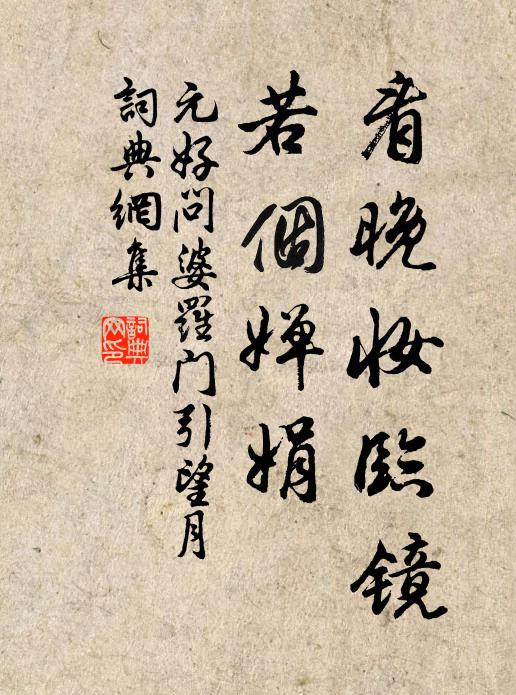 看晚妆臨镜
若個婵娟
元好问婆羅门引望月
詞典網集
詞典网印